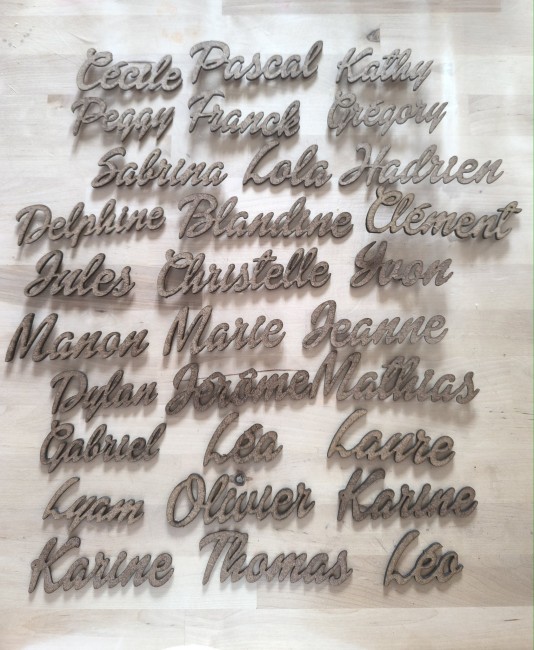 Cécile Pascal Kathy
Peggy Franck Grégory
Sabrina Lola Hadrien
Delphine Blandine Clément
Jules Christelle Yvon
Manon Marie Jeanne
Dylan Jérôme Mathias
Gabriel Léa Laure
Lyam Olivier Karine
Karine Thomas Léo